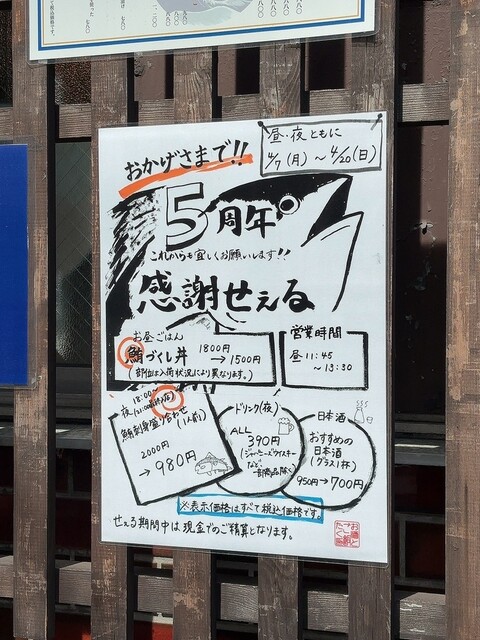 昼・夜ともに
4/7(月)～4/20(日)
おかげさまで!!
5周年
これからも宜しくお願いします!!
感謝せぇる
お昼ごはん
鮪づくし丼 1800円→1500円
(部位は入荷状況により異なります。)
営業時間
昼11:45
～13:30
夜18:00～
鮪刺身盛り合わせ(1人前)
2000円
→980円
ドリンク(夜)
ALL
390円
(ジャパニーズウイスキー
など、
一部商品除く)
日本酒
おすすめの
日本酒
(グラス1杯)
950円→700円
※表示価格はすべて税込価格です。
せぇる期間中は現金でのご精算となります。